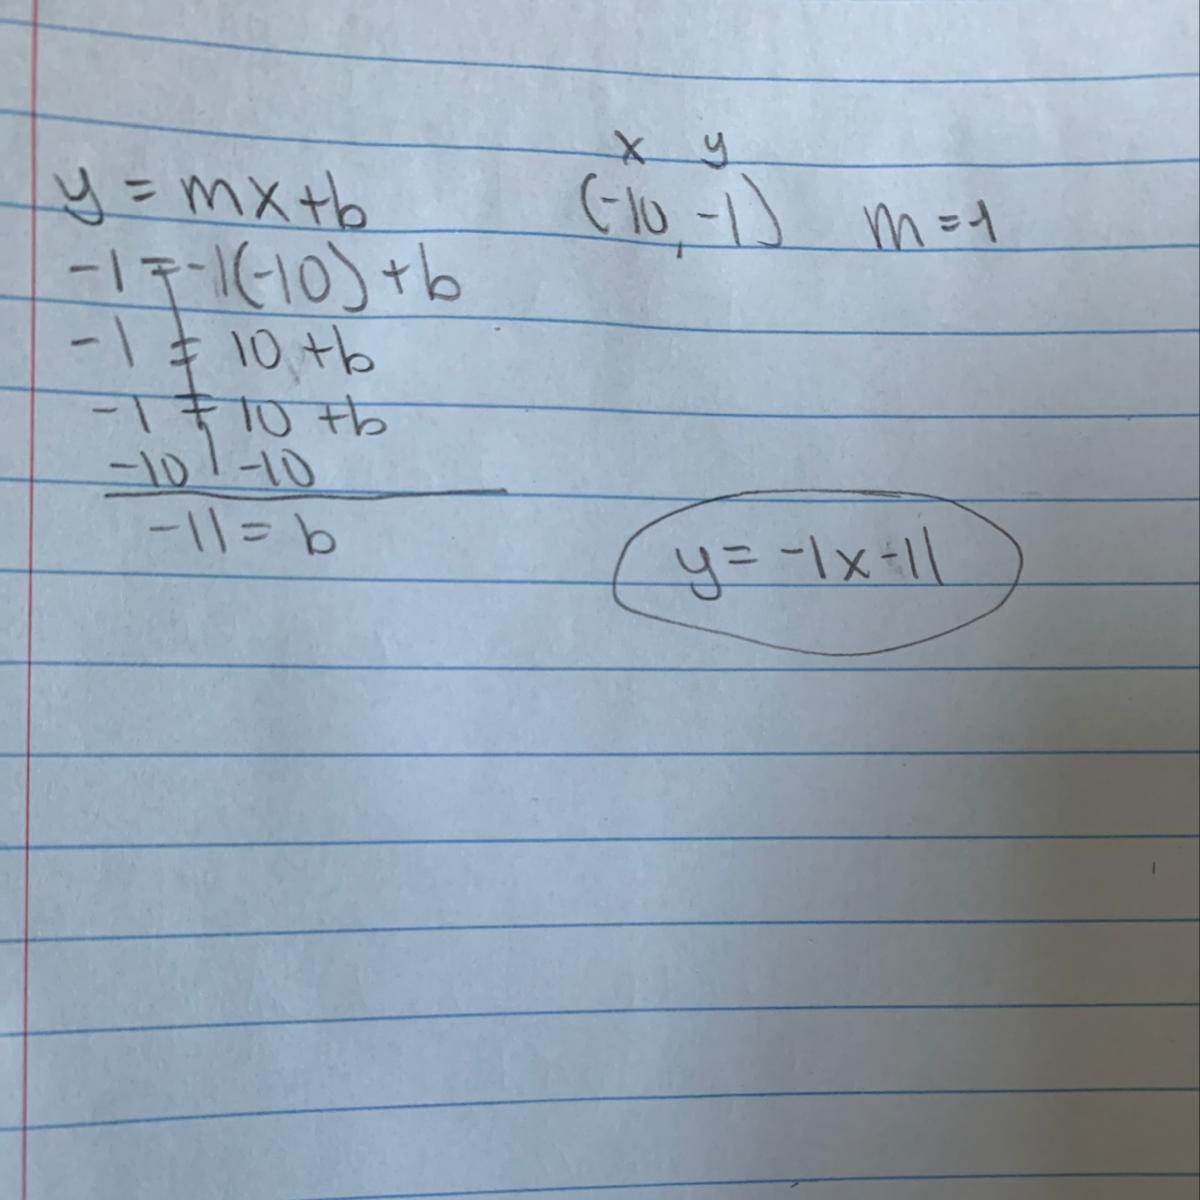 x y
y = mx+b (-10, -1) m = -1
-1 = -1(-10) + b
-1 = 10 + b
-1 = 10 + b
-10 | -10
-11 = b
y = -1x - 11